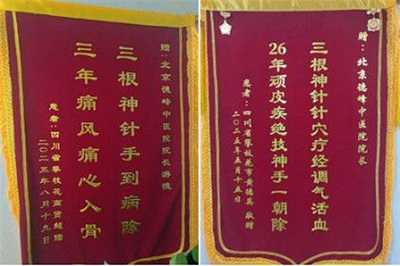 赠:北京德峰中医院院长
三根神针手到病除
三年痛风痛心入骨
患者:四川省攀枝花
二〇二五年八月十九日
赠:北京德峰中医院院长
三根神针针穴疗经调气活血
26年顽皮疾绝技神手一朝除
患者:四川省攀枝花市黄德英 敬赠
二〇二五年五月十五日